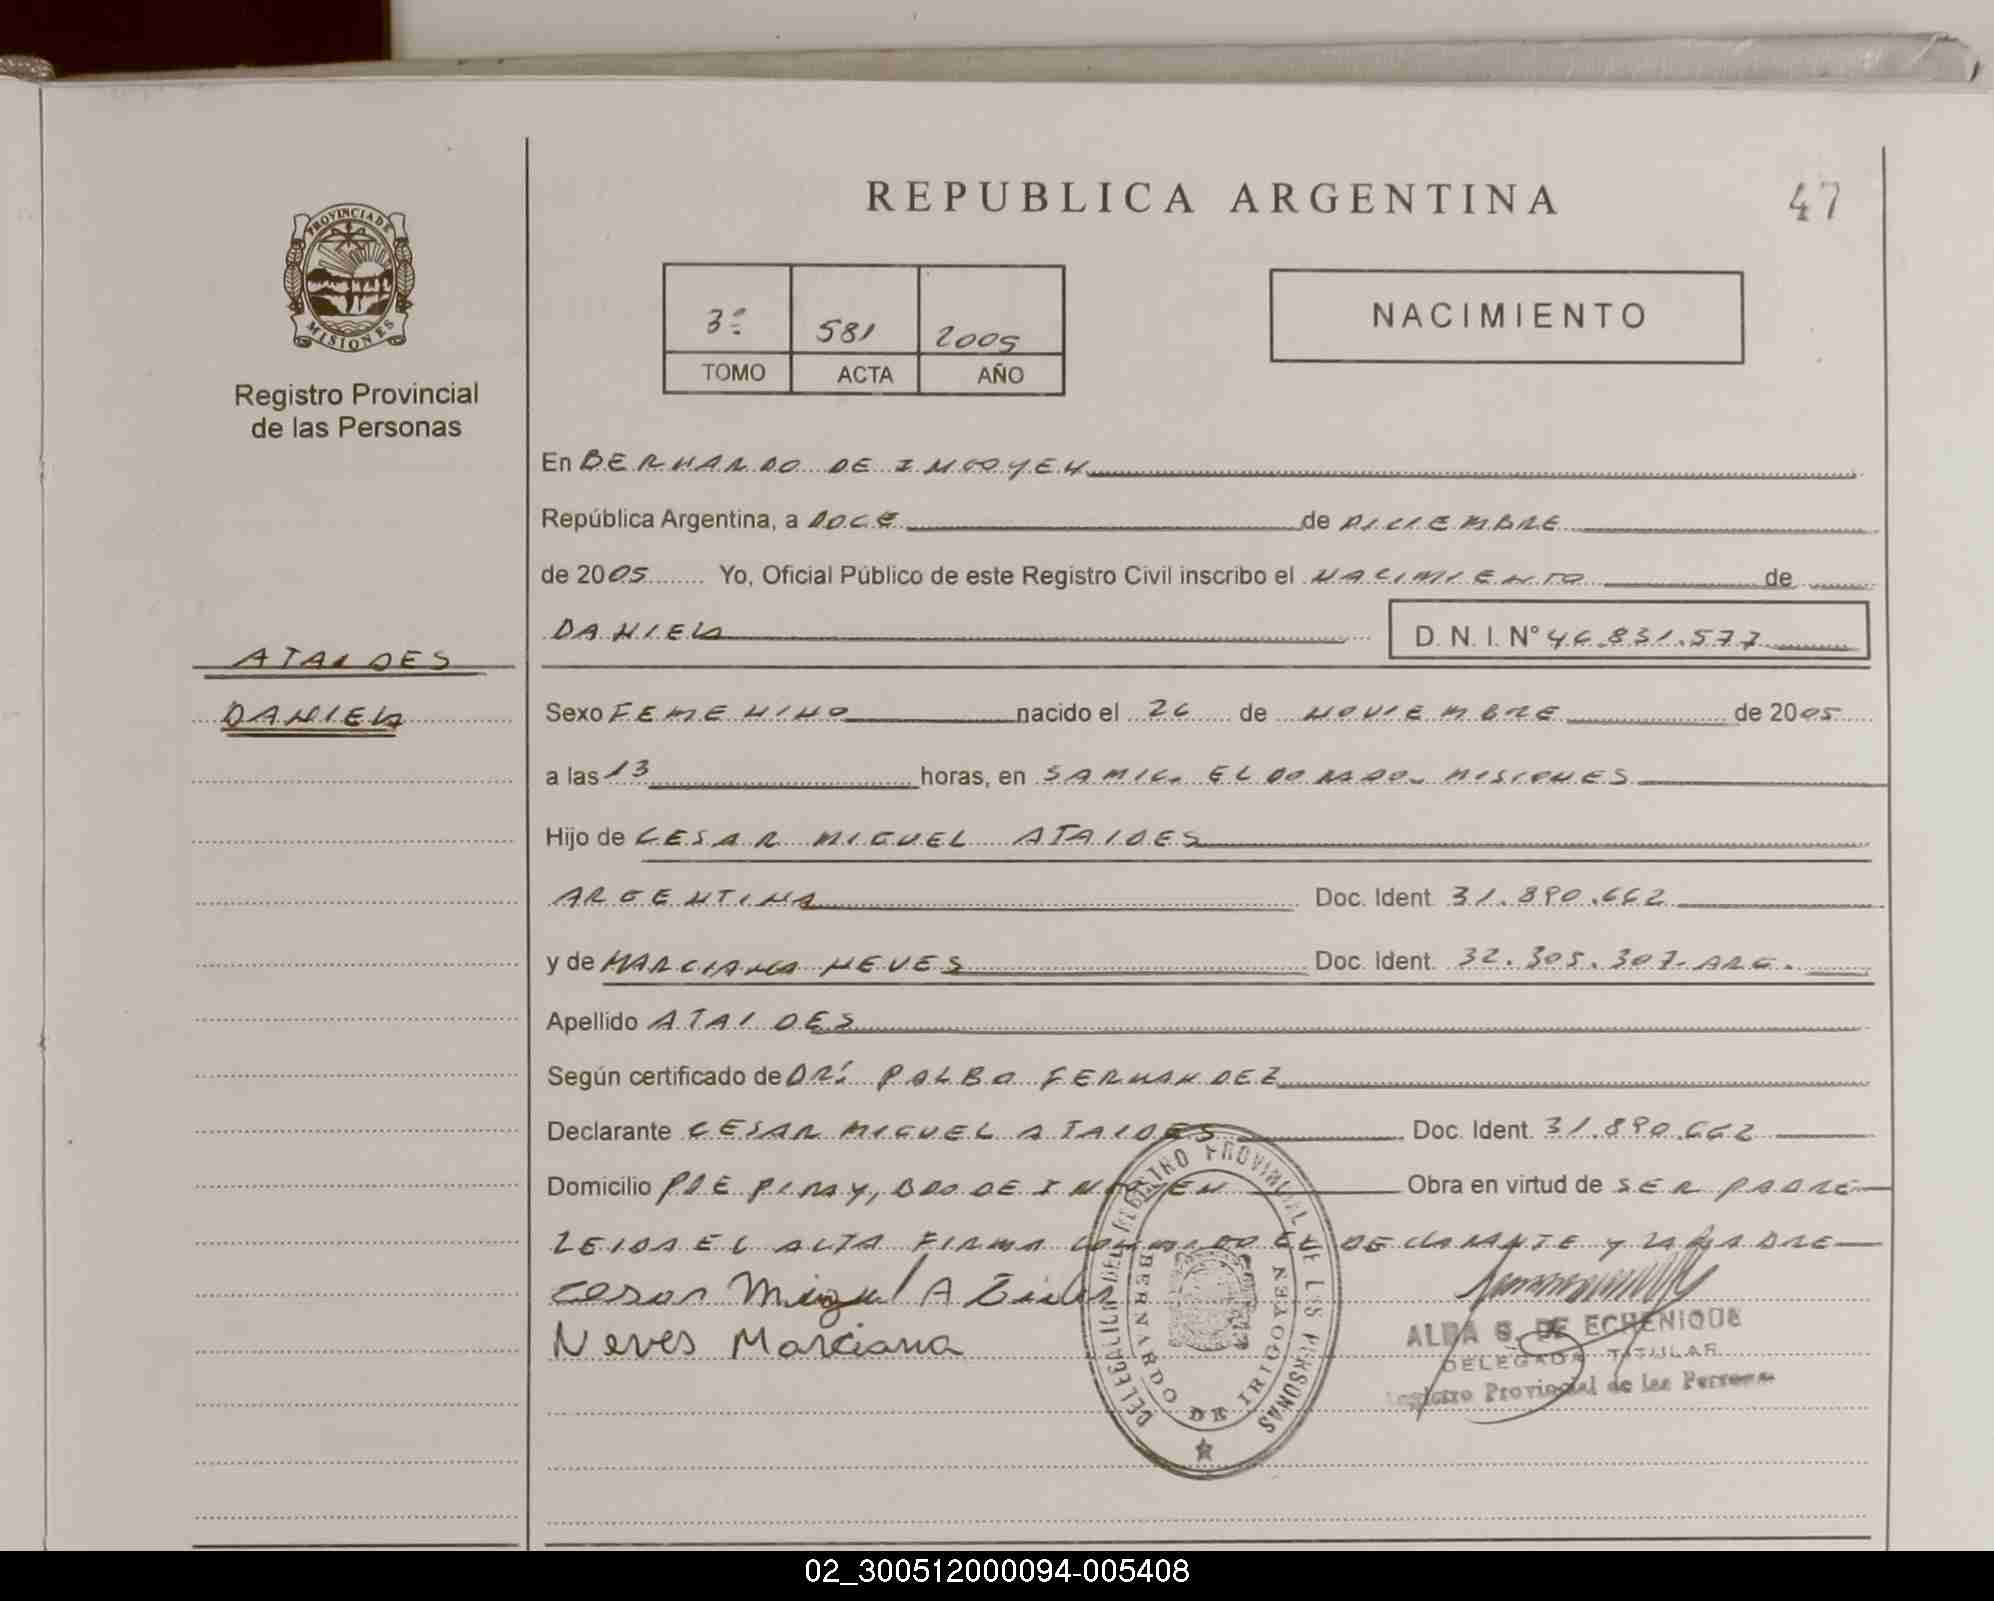 REPUBLICA ARGENTINA
47
PROVINCIA DE
MISIONES
Registro Provincial
de las Personas
3º 581 2005
TOMO ACTA AÑO
NACIMIENTO
En BERNARDO DE IRIGOYEN
República Argentina, a DOCE de DICIEMBRE
de 2005 Yo, Oficial Público de este Registro Civil inscribo el NACIMIENTO de
DANIELA D. N. I. Nº 46.831.577
ATAIDES
DANIELA
Sexo FEMENINO nacido el 26 de NOVIEMBRE de 2005
a las 13 horas, en SAMIC. ELDORADO. MISIONES
Hijo de CESAR MIGUEL ATAIDES
ARGENTINA Doc. Ident. 31.890.662
y de MARCIANA NEVES Doc. Ident. 32.305.307. ARG.
Apellido ATAIDES
Según certificado de DR. PALBO FERNANDEZ
Declarante CESAR MIGUEL ATAIDES Doc. Ident. 31.890.662
Domicilio PJE PIRAY, BDO DE IRIGOYEN Obra en virtud de SER PADRE
LEIDA EL ACTA FIRMA CONMIGO EL DECLARANTE Y LA MADRE
Cesar Miguel Ataides
Neves Marciana
DELEGACION DEL REGISTRO PROVINCIAL DE LAS PERSONAS
BERNARDO DE IRIGOYEN
ALBA G. DE ECHENIQUE
DELEGADA TITULAR
Registro Provincial de las Personas
02_300512000094-005408